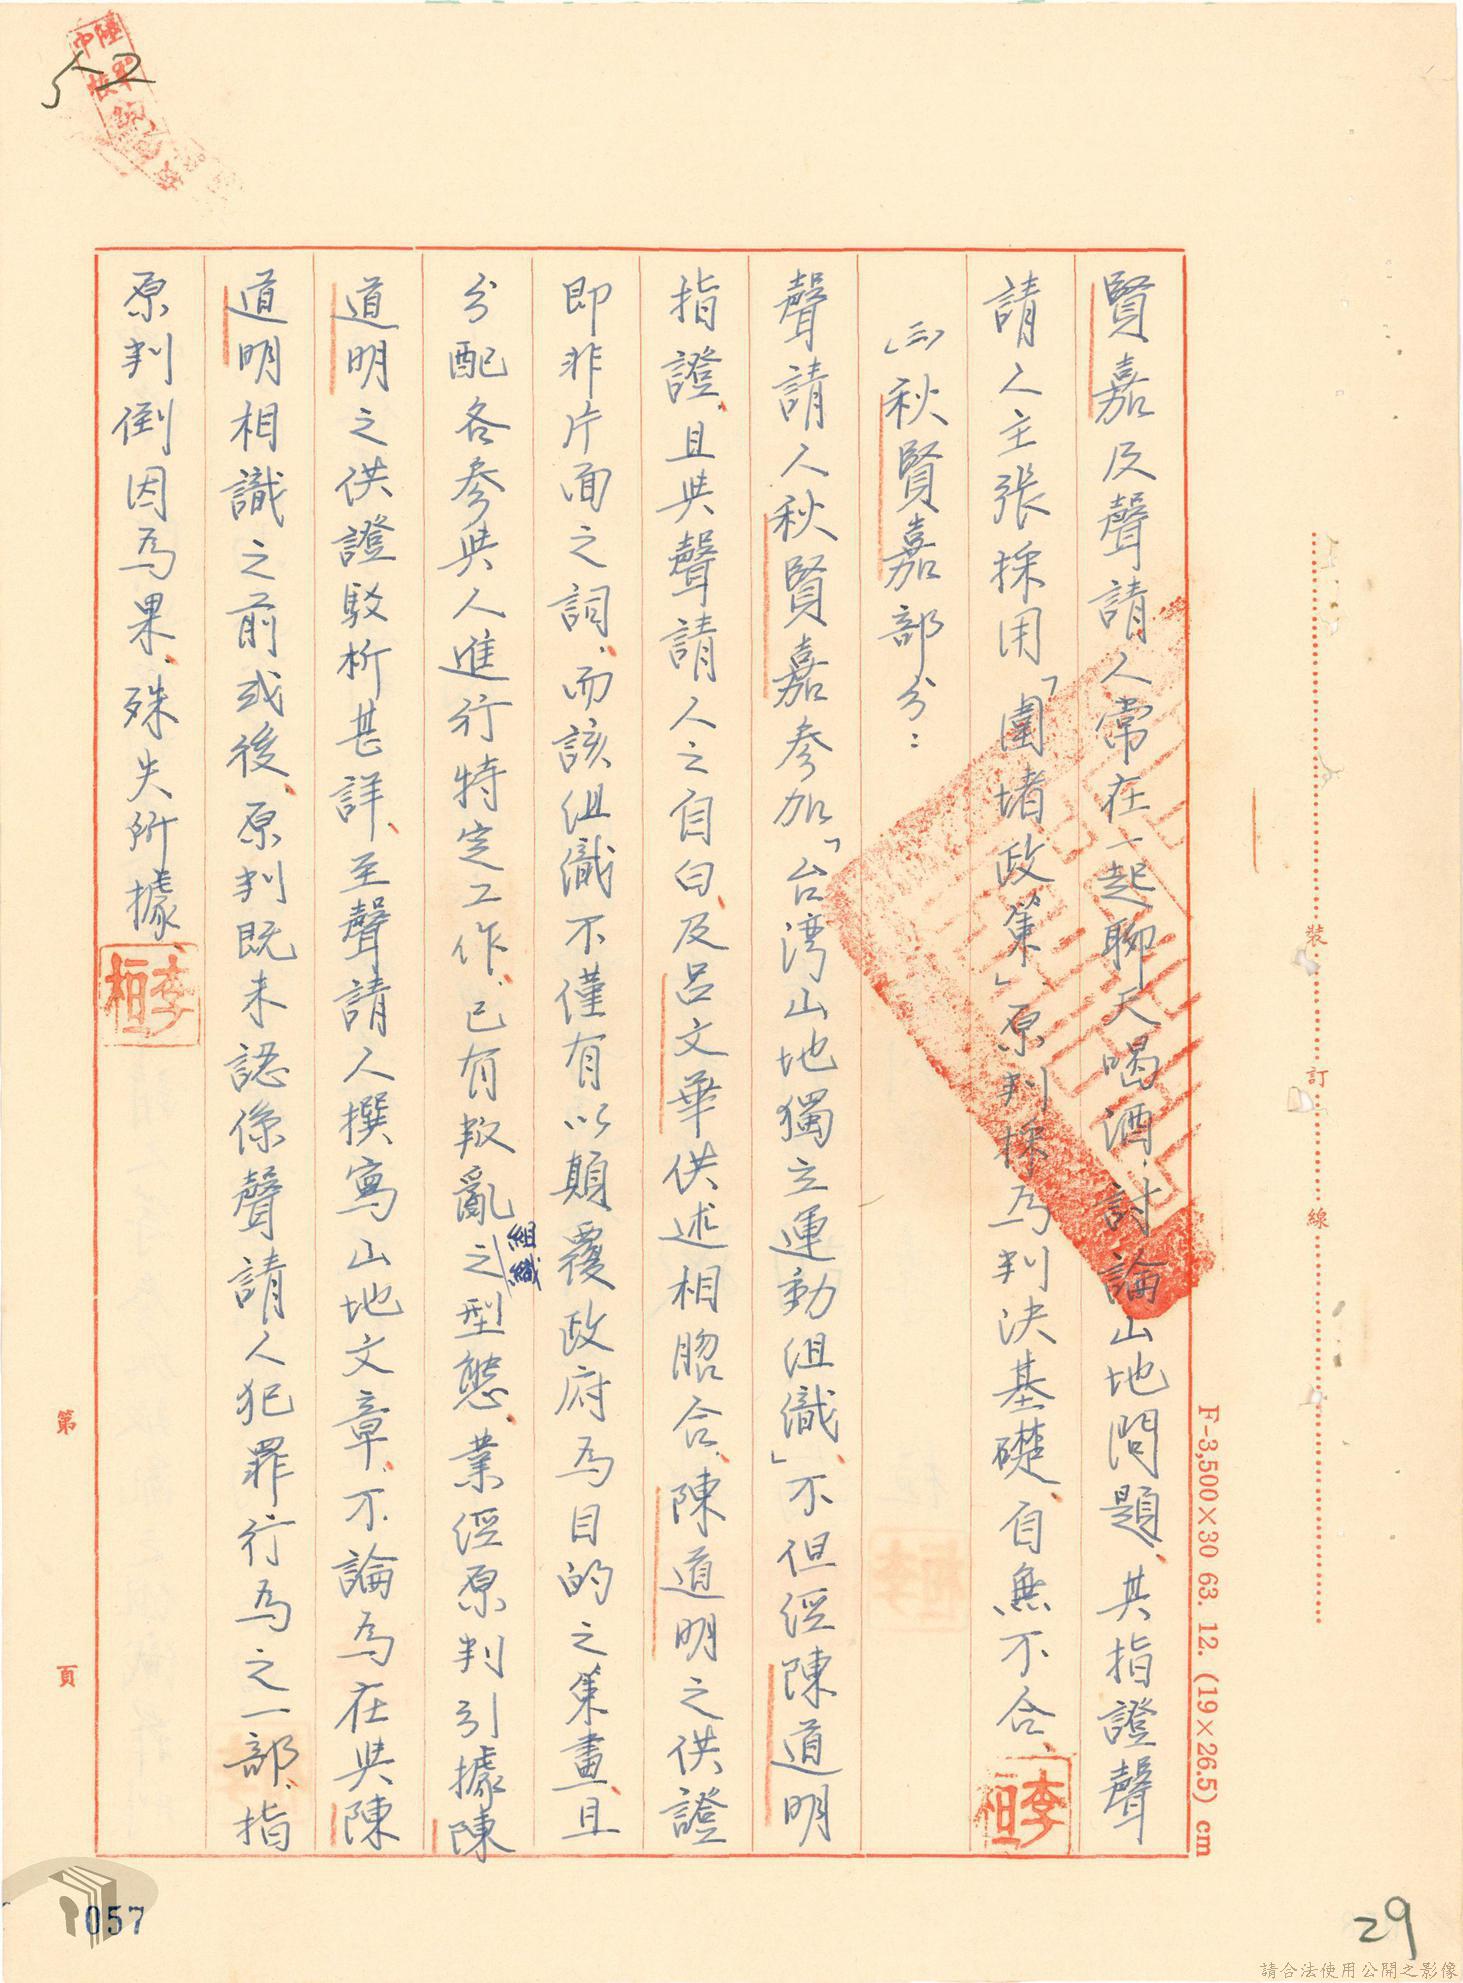 賢嘉及聲請人常在一起聊天喝酒、討論山地問題、其指證聲
請人主張採用「圍堵政策」、原判採為判決基礎、自無不合、
㈢秋賢嘉部分：
聲請人秋賢嘉參加「台湾山地獨立運動組織」、不但經陳道明
指證、且與聲請人之自白、及呂文華供述相脗合、陳道明之供證
即非片面之詞、而該組織不僅有以顛覆政府為目的之策畫、且
分配各參與人進行特定工作、已有叛亂組織之型態、業經原判引據陳
道明之供證駁析甚詳、至聲請人撰寫山地文章、不論為在與陳
道明相識之前或後、原判既未認係聲請人犯罪行為之一部、指
原判倒因為果、殊失所據、
李桓
李桓
裝訂線
F-3,500×30 63. 12. (19×26.5) cm
第 頁
057
29
請合法使用公開之影像